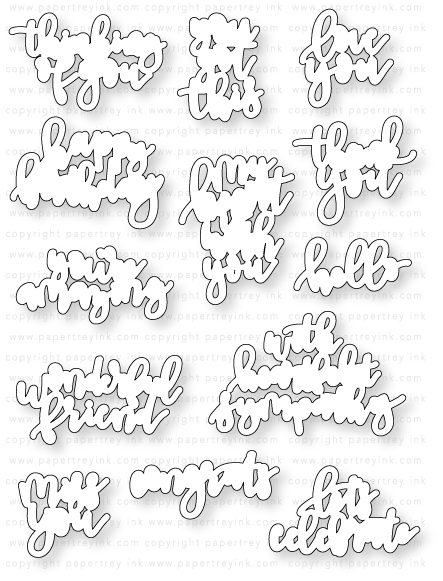 thinking
of you
got
this
love
you
happy
birthday
hugs
and
for
you
thank
you
you're
amazing
hello
wonderful
friend
with
heartfelt
sympathy
miss
you
congrats
let's
celebrate
copyright papertrey ink.
www.papertreyink.com